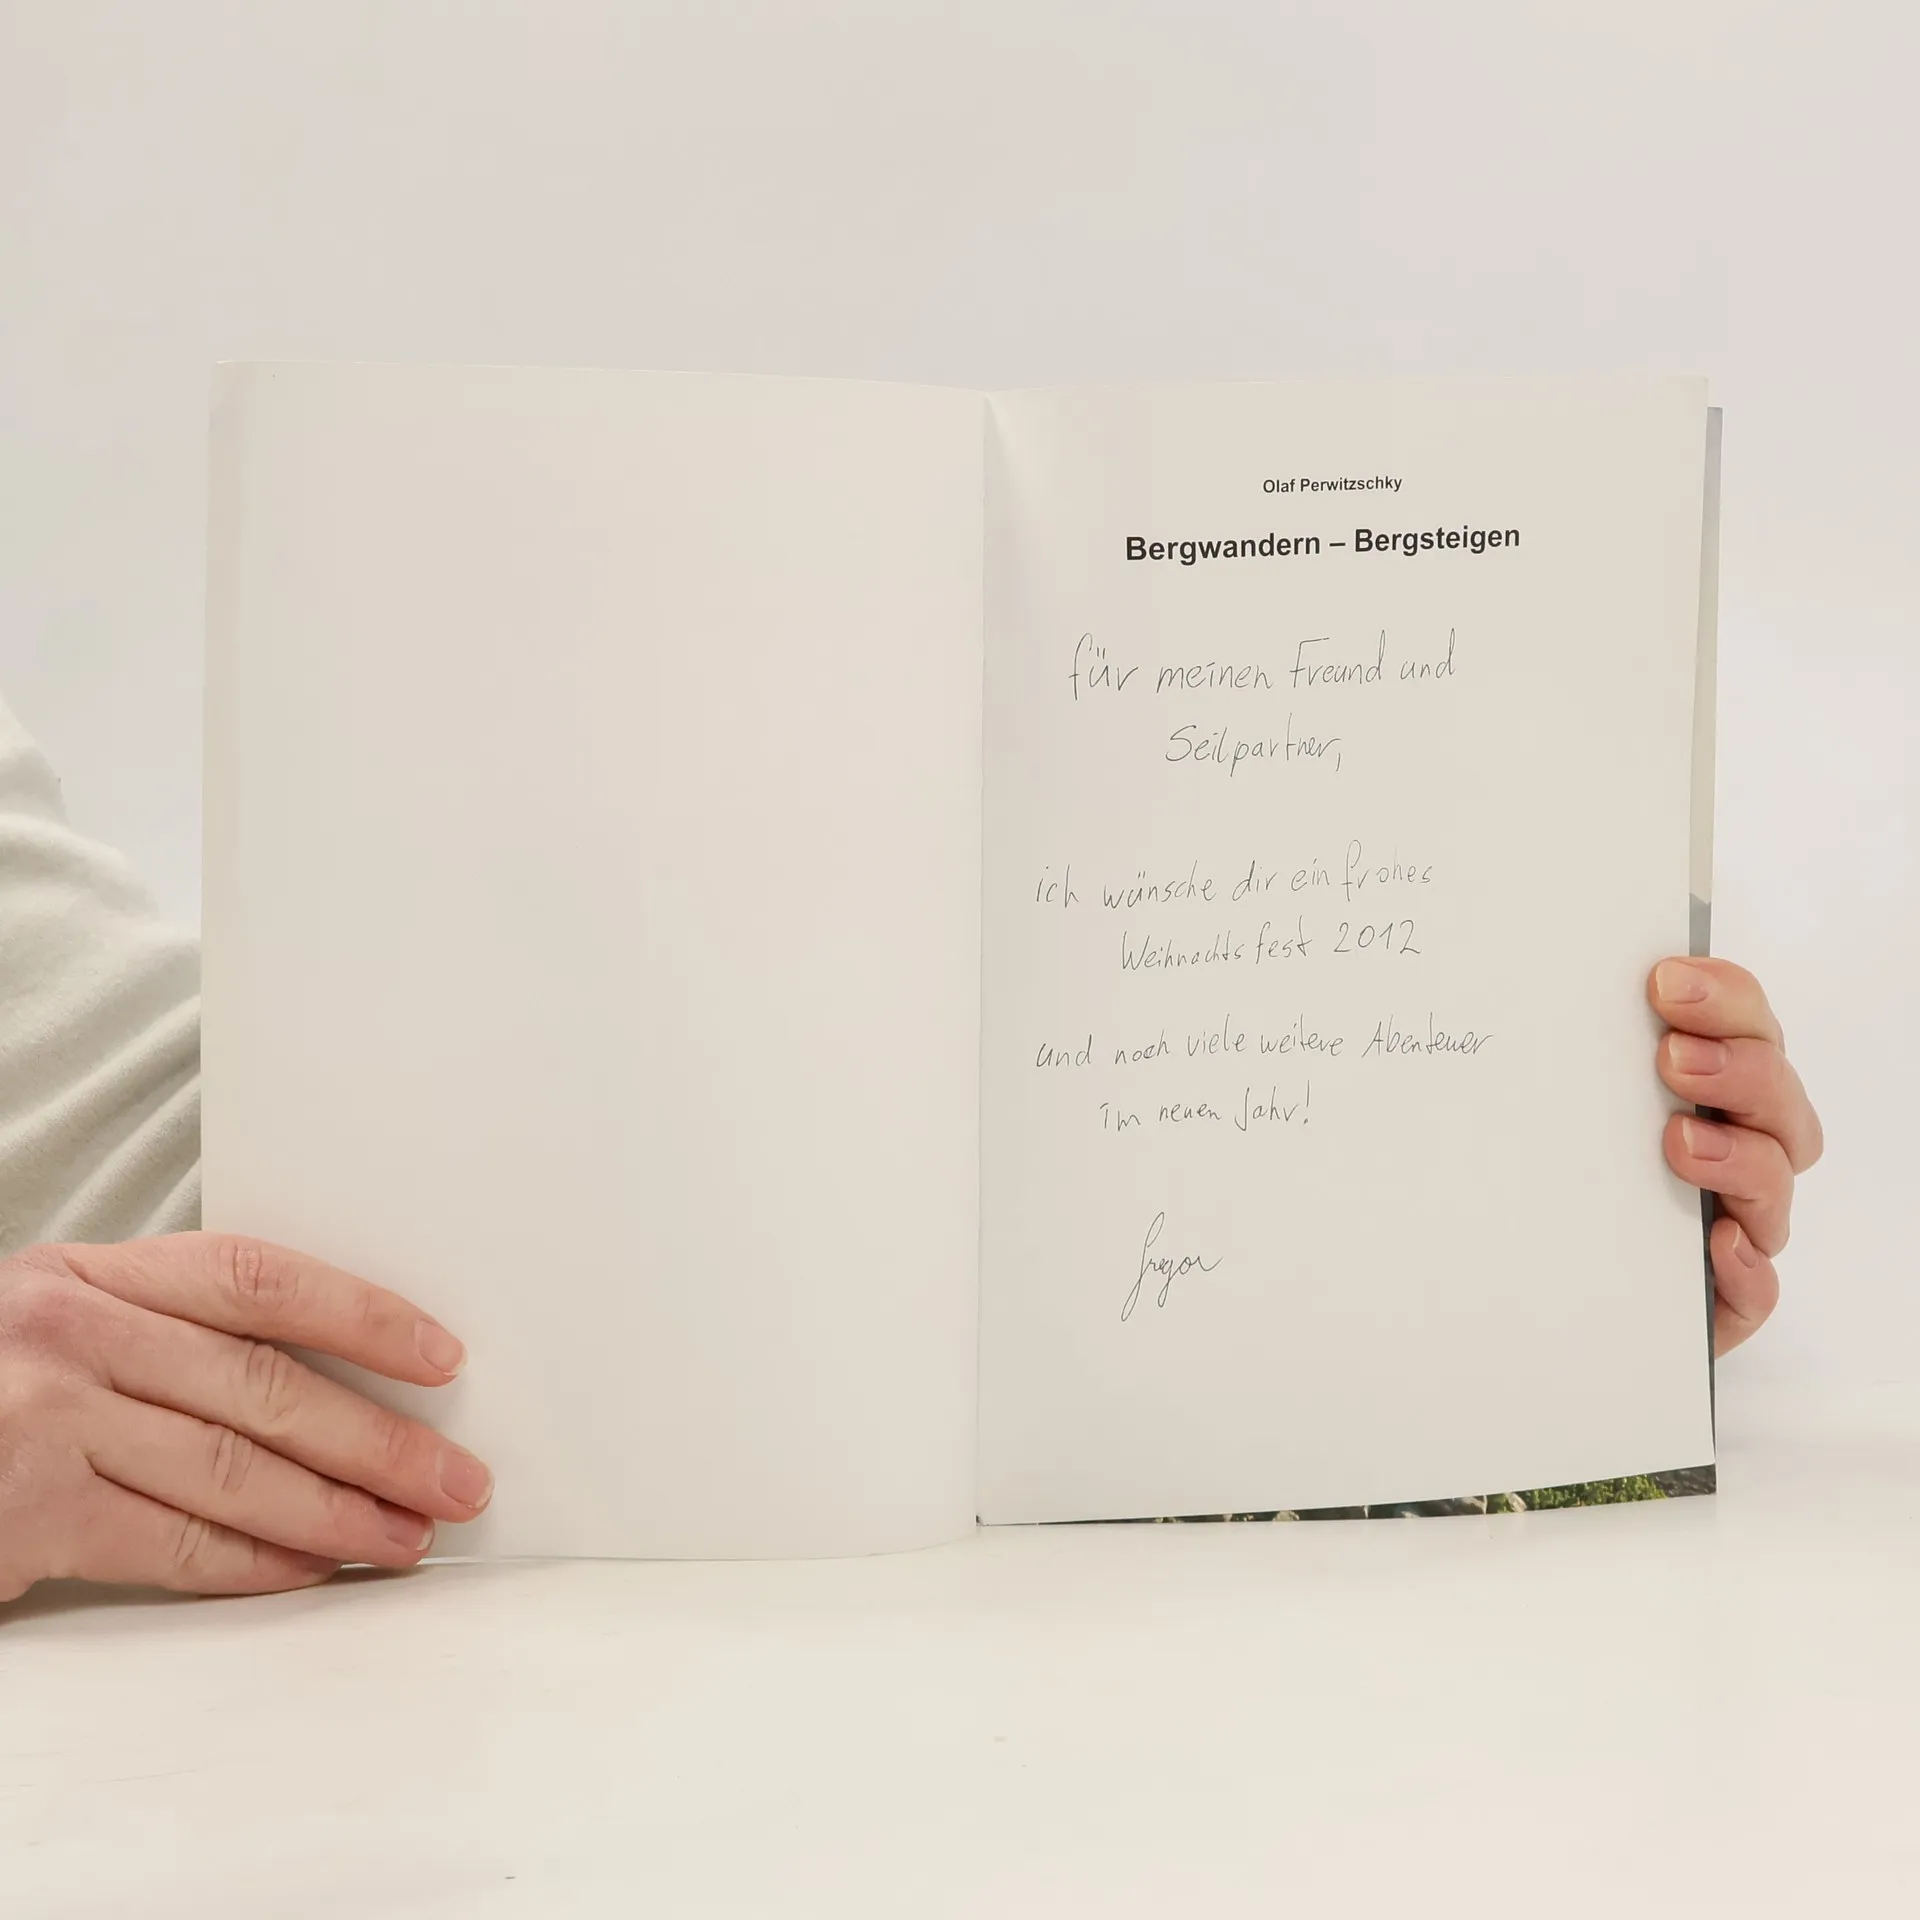 Olaf Perwitzschky
Bergwandern – Bergsteigen
für meinen Freund und
Seilpartner,
ich wünsche dir ein frohes
Weihnachtsfest 2012
und noch viele weitere Abenteuer
im neuen Jahr!
Gregor